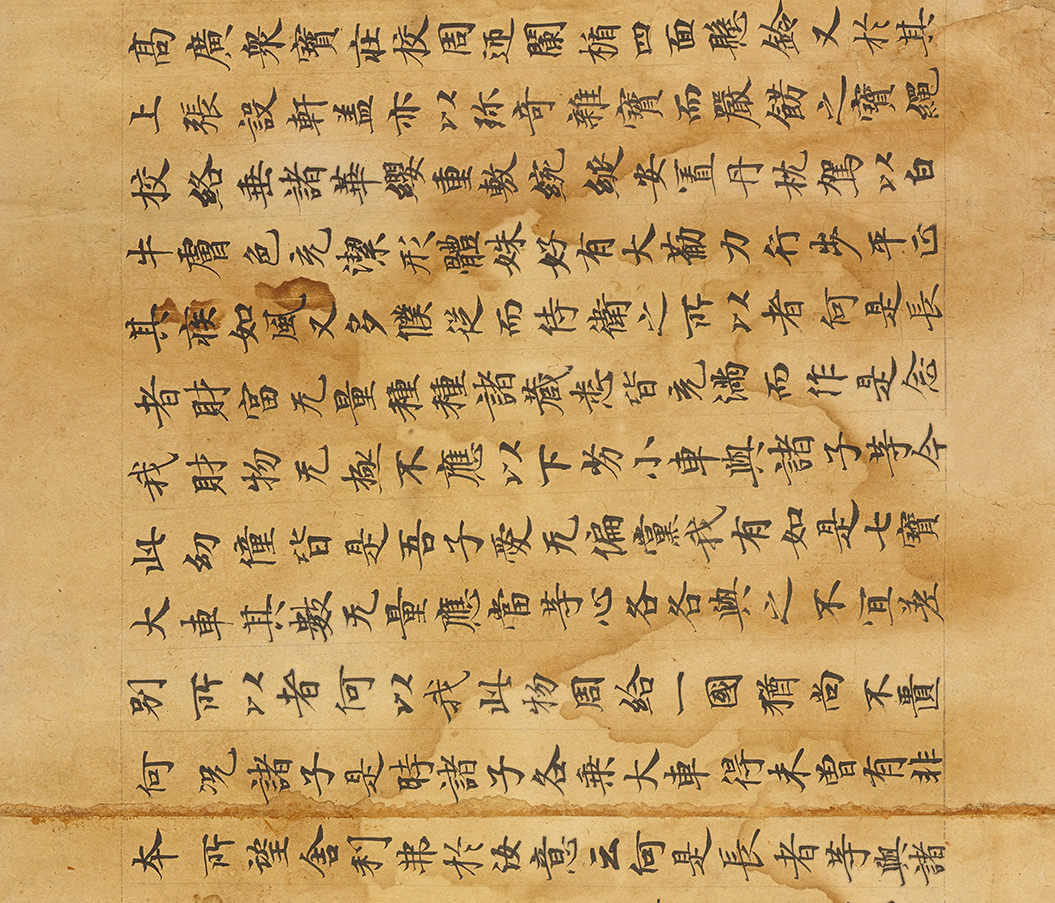 高廣衆寶莊校周迊闌楯四面懸鈴又於其
上張設軒盖亦以珎奇雜寶而嚴飾之寶繩
校絡垂諸華纓重敷綩綖安置丹枕駕以白
牛膚色充潔形體姝好有大荕力行步平正
其疾如風又多僕從而侍衛之所以者何是長
者財富无量種種諸藏悉皆充滿而作是念
我財物无極不應以下劣小車與諸子等今
此幼僮皆是吾子愛无偏黨我有如是七寶
大車其數无量應當等心各各與之不宜差
別所以者何以我此物周給一國猶尚不匱
何況諸子是時諸子各乘大車得未曾有非
本所望舍利弗於汝意云何是長者等與諸